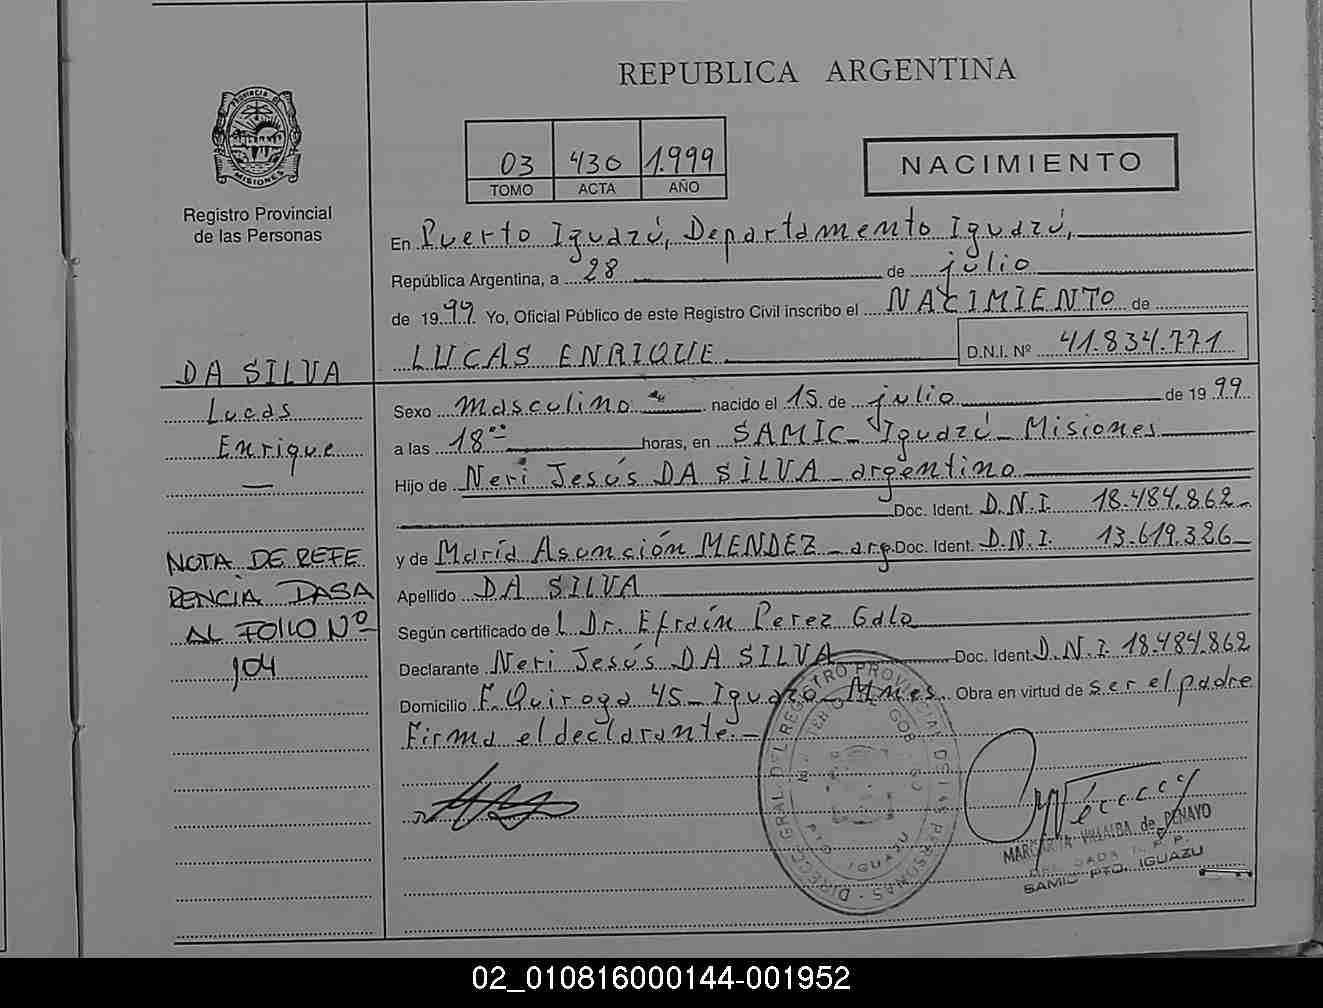 REPUBLICA ARGENTINA
PROVINCIA DE MISIONES
Registro Provincial
de las Personas
03 430 1.999
TOMO ACTA AÑO
NACIMIENTO
En Puerto Iguazú, Departamento Iguazú,
República Argentina, a 28 de julio
de 1999. Yo, Oficial Público de este Registro Civil inscribo el NACIMIENTO de
LUCAS ENRIQUE D.N.I. Nº 41.834.771
DA SILVA
Lucas
Enrique
NOTA DE REFE
RENCIA PASA
AL FOLIO Nº
104
Sexo masculino nacido el 15 de julio de 1999
a las 18 horas, en SAMIC - Iguazú - Misiones
Hijo de Neri Jesús DA SILVA - argentino
Doc. Ident. D.N.I. 18.484.862-
y de María Asunción MENDEZ - arg. Doc. Ident. D.N.I. 13.619.326-
Apellido DA SILVA
Según certificado de l Dr. Efraín Perez Galo
Declarante Neri Jesús DA SILVA Doc. Ident. D.N.I. 18.484.862
Domicilio F. Quiroga 45 - Iguazú - Mnes. Obra en virtud de ser el padre
Firma el declarante.-
DIREC. GRAL. DEL REGISTRO PROVINCIAL DE LAS PERSONAS
IGUAZU
MARGARITA VILLALBA de PENAYO
SAMIC PTO. IGUAZU
02_010816000144-001952